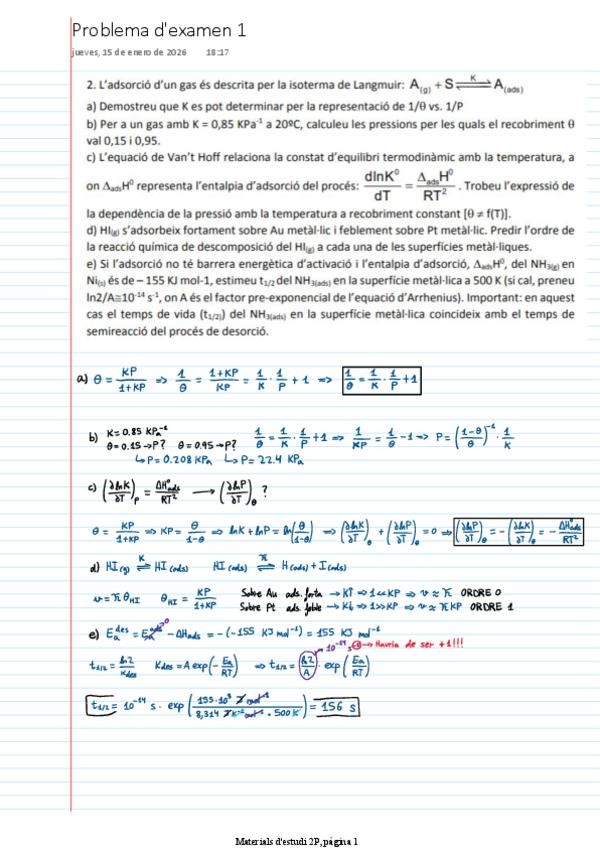 Problema d'examen 1
jueves, 15 de enero de 2026 18:17
2. L'adsorció d'un gas és descrita per la isoterma de Langmuir: A(g) + S ⇌ A(ads) K
a) Demostreu que K es pot determinar per la representació de 1/θ vs. 1/P
b) Per a un gas amb K = 0,85 KPa⁻¹ a 20ºC, calculeu les pressions per les quals el recobriment θ
val 0,15 i 0,95.
c) L'equació de Van't Hoff relaciona la constat d'equilibri termodinàmic amb la temperatura, a
on ΔadsH⁰ representa l'entalpia d'adsorció del procés: dlnK⁰/dT = ΔadsH⁰/RT² . Trobeu l'expressió de
la dependència de la pressió amb la temperatura a recobriment constant [θ ≠ f(T)].
d) HI(g) s'adsorbeix fortament sobre Au metàl·lic i feblement sobre Pt metàl·lic. Predir l'ordre de
la reacció química de descomposició del HI(g) a cada una de les superfícies metàl·liques.
e) Si l'adsorció no té barrera energètica d'activació i l'entalpia d'adsorció, ΔadsH⁰, del NH3(g) en
Ni(s) és de – 155 KJ mol-1, estimeu t1/2 del NH3(ads) en la superfície metàl·lica a 500 K (si cal, preneu
ln2/A≅10⁻¹⁴ s⁻¹, on A és el factor pre-exponencial de l'equació d'Arrhenius). Important: en aquest
cas el temps de vida (t1/2)) del NH3(ads) en la superfície metàl·lica coincideix amb el temps de
semireacció del procés de desorció.
a) θ = KP/1+KP => 1/θ = 1+KP/KP = 1/K · 1/P + 1 => 1/θ = 1/K · 1/P + 1
b) K = 0.85 KPa⁻¹
θ = 0.15 → P? θ = 0.95 → P? 1/θ = 1/K · 1/P + 1 => 1/KP = 1/θ - 1 => P = (1-θ/θ)⁻¹ · 1/K
↳ P = 0.208 KPa ↳ P = 22.4 KPa
c) (∂lnK/∂T)P = ΔH°ads/RT² → (∂lnP/∂T)θ ?
θ = KP/1+KP => KP = θ/1-θ => lnK + lnP = ln(θ/1-θ) => (∂lnK/∂T)θ + (∂lnP/∂T)θ = 0 => (∂lnP/∂T)θ = -(∂lnK/∂T)θ = -ΔH°ads/RT²
d) HI(g) ⇌ HI(ads) K HI(ads) ⇌ H(ads) + I(ads)
Sobre Au ads. forta → K↑ => 1<<KP => ORDRE 0
θHI = KP/1+KP
Sobre Pt ads. feble → K↓ => 1>>KP => ORDRE 1
e) Ea des = Ea ads - ΔHads = -(-155 KJ mol⁻¹) = 155 KJ mol⁻¹
10⁻¹⁴ s⁻¹ → Hauria de ser +1!!!
t1/2 = ln2/Kdes Kdes = A exp(-Ea/RT) => t1/2 = (ln2/A) · exp(Ea/RT)
t1/2 = 10⁻¹⁴ s · exp(155·10³ J mol⁻¹/8,314 J K⁻¹ mol⁻¹ · 500 K) = 156 s
Materials d'estudi 2P, pàgina 1